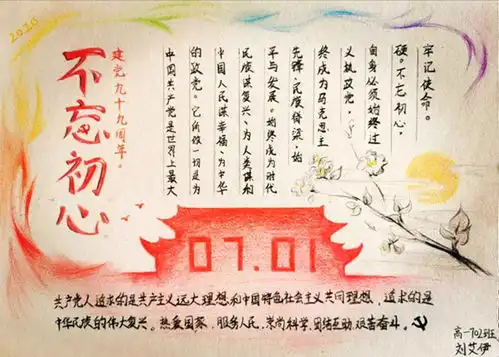 2020
不忘初心
建党九十九周年。
中国共产党是世界上最大
的政党。它所做一切是为
中国人民谋幸福、为中华
民族谋复兴、为人类谋和
平与发展。始终成为时代
先锋、民族脊梁,始
终成为马克思主
义执政党,
自身必须始终过
硬。不忘初心,
牢记使命。
07.01
共产党人追求的是共产主义远大理想和中国特色社会主义共同理想,追求的是
中华民族的伟大复兴。热爱国家,服务人民,崇尚科学,团结互助,艰苦奋斗。
高一702班
刘艾伊